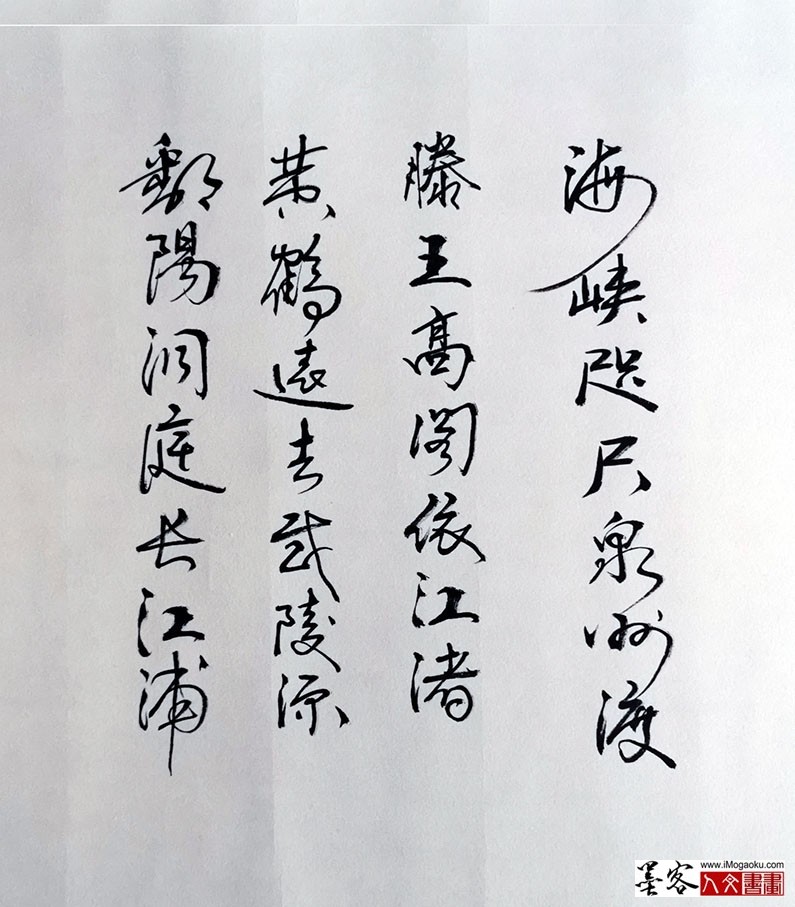 海峡咫尺泉州渡
滕王高阁依江渚
黄鹤远去武陵源
鄱陽洞庭长江浦
墨客
www.iMogaoku.com
人文書畫